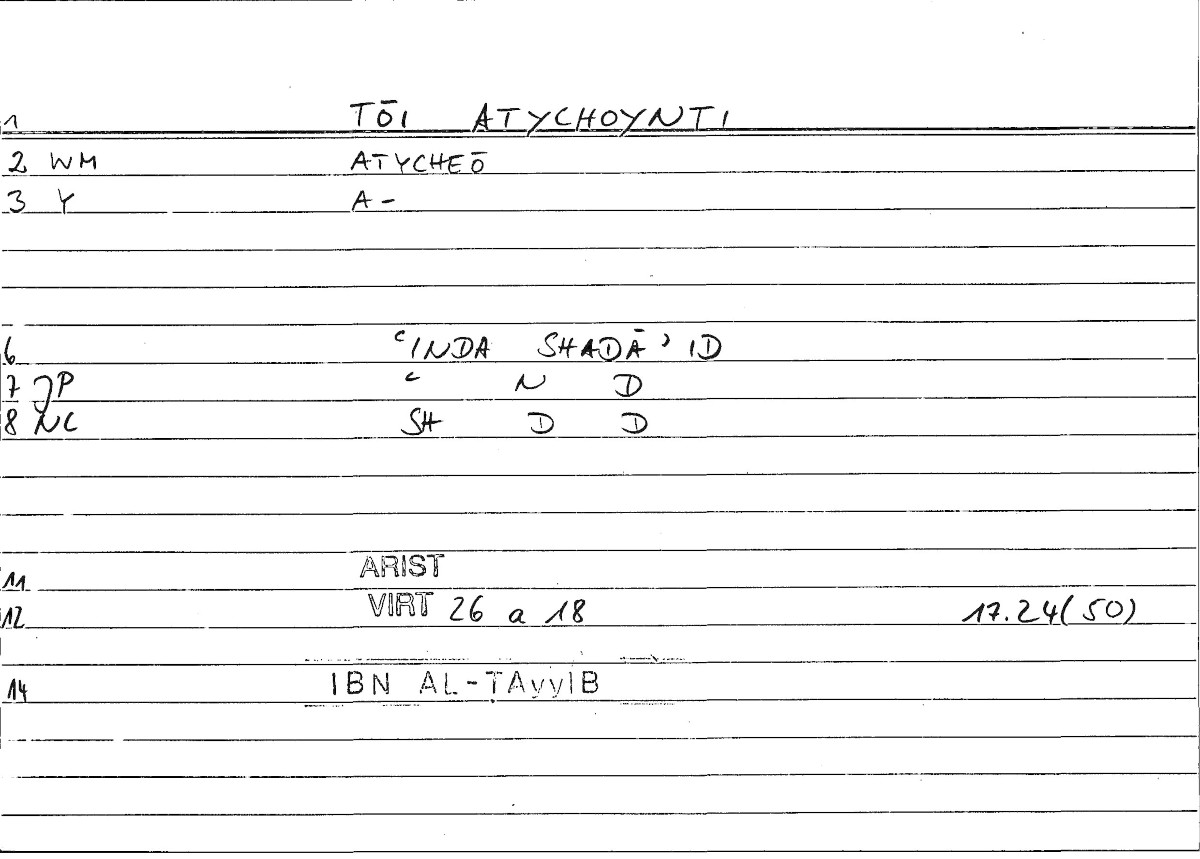 1 TŌI ATYCHOYNTI
2 WM ATYCHEŌ
3 Y A-
6 ʿINDA SHADĀʾID
7 JP ʿ N D
8 NC SH D D
11 ARIST
12 VIRT 26 a 18 17.24(50)
14 IBN AL-ṬAyyIB